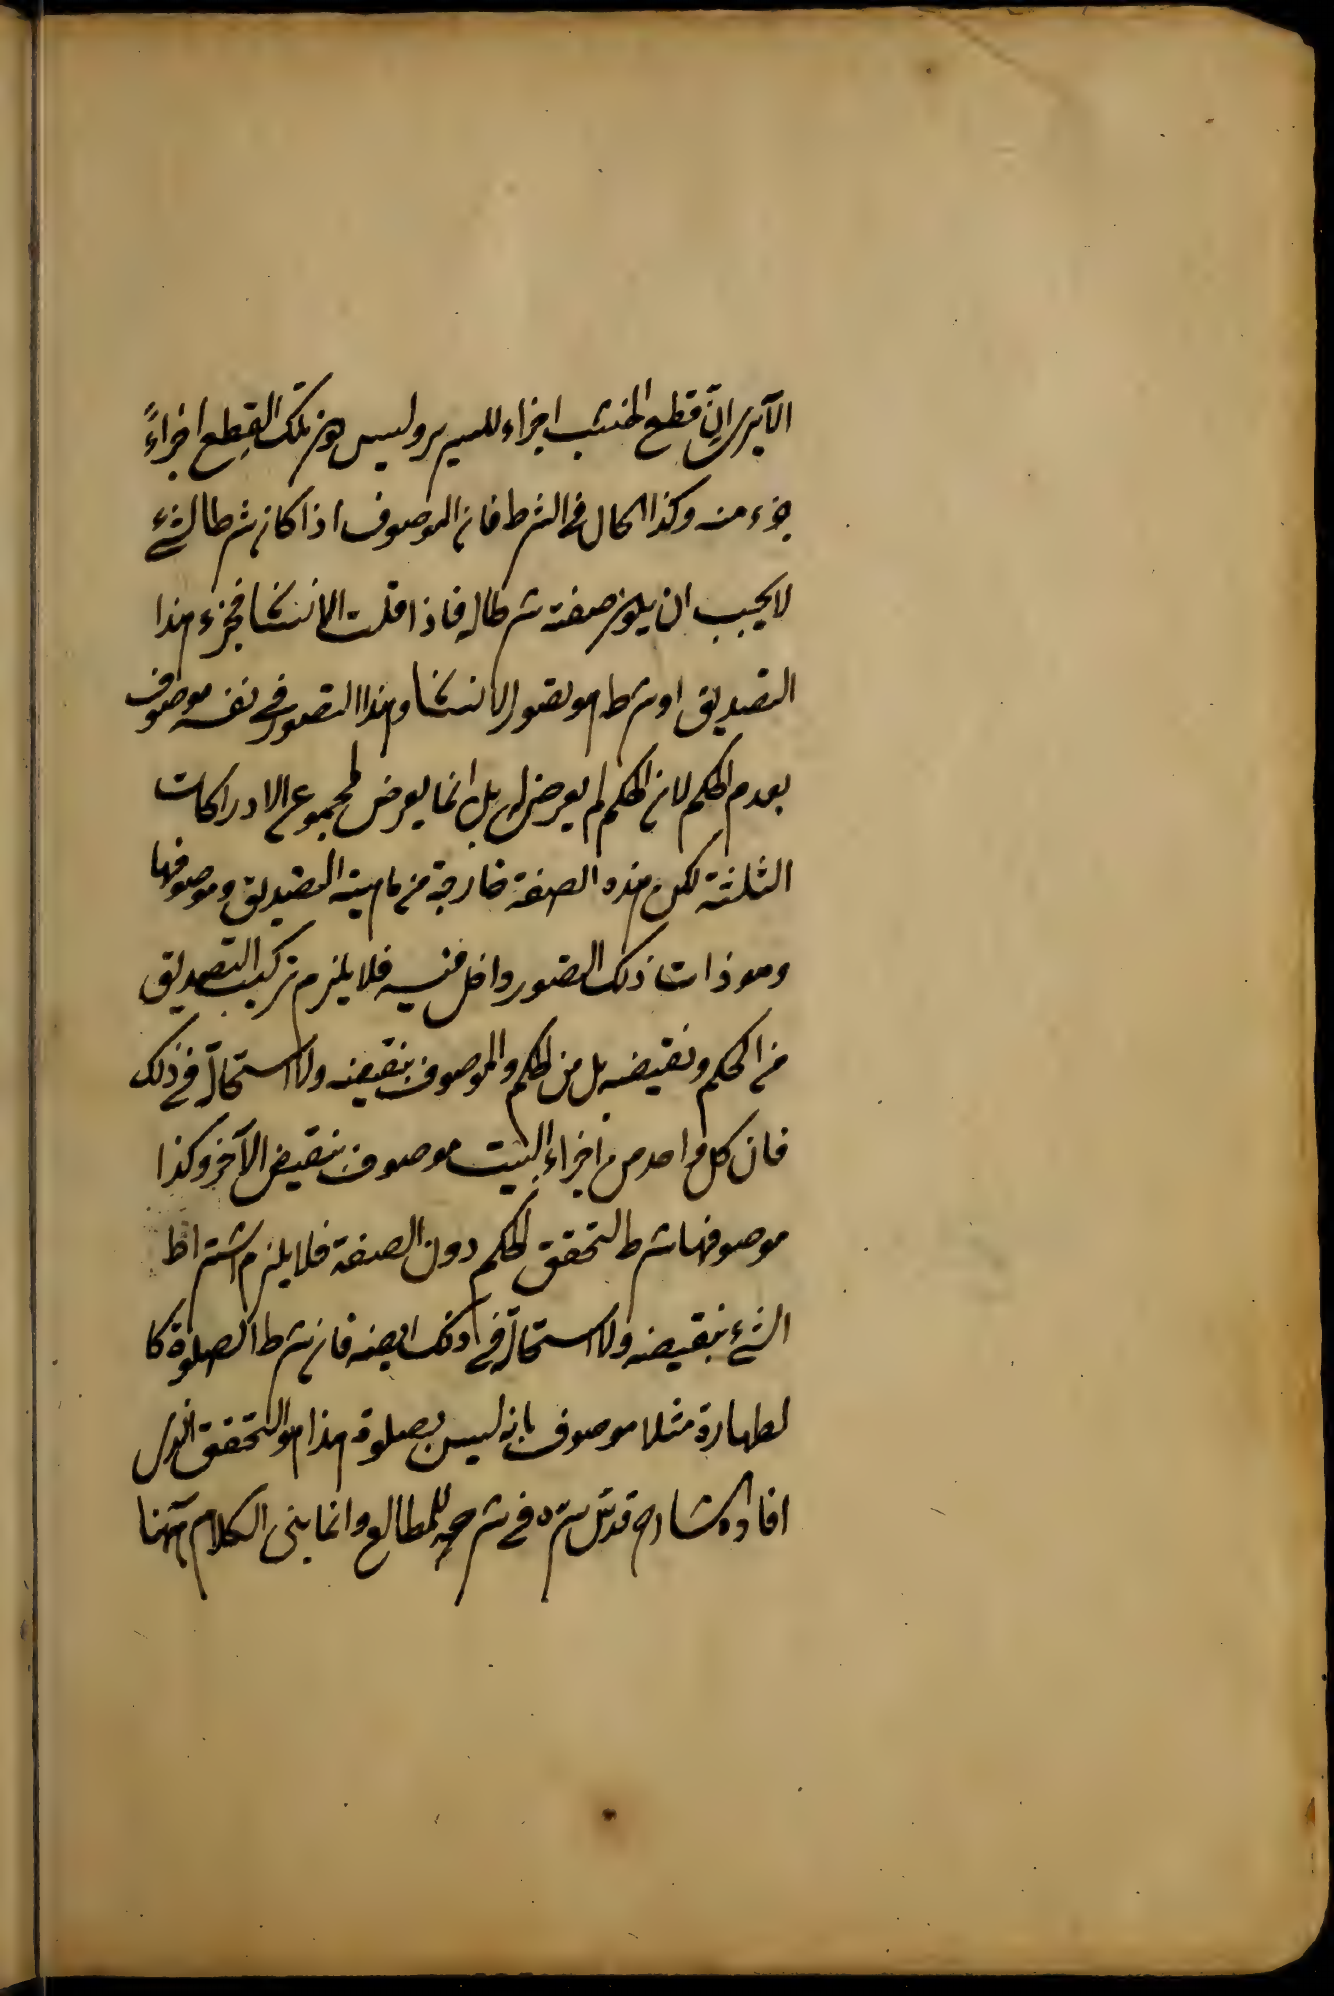 الا يرى انّ قطع الخشب اجزاء للسرير وليس كون تلك القِطع اجزاءً
جزء منه وكذا الحال فى الشرط فان الموصوف اذا كان شرطا لشئ
لا يجب ان يكون صفته شرطا له فاذا قلت الانسان فجزء هذا
التصديق او شرطه هو تصور الانسان وهذا التصور فى نفسه موصوف
بعدم الحكم لان الحكم لم يعرض له بل انما يعرض لمجموع الادراكات
الثلثة لكن هذه الصفة خارجة من ماهية التصديق وموصوفها
وهو ذات ذلك التصور داخل فيه فلا يلزم تركيب التصديق
من الحكم ونقيضه بل من الحكم والموصوف بنقيضه ولا استحالة فى ذلك
فان كل واحد من اجزاء البيت موصوف بنقيض الآخر وكذا
موصوفها شرط لتحقق الحكم دون الصفة فلا يلزم اشتراط
الشئ بنقيضه ولا استحالة فى ذلك ايضا فان شرط الصلوة كا
لطهارة مثلا موصوف بانه ليس بصلوة هذا هو التحقق الذى
افاده الشارح قدّس سرّه فى شرحه للمطالع وانما بنى الكلام ههنا